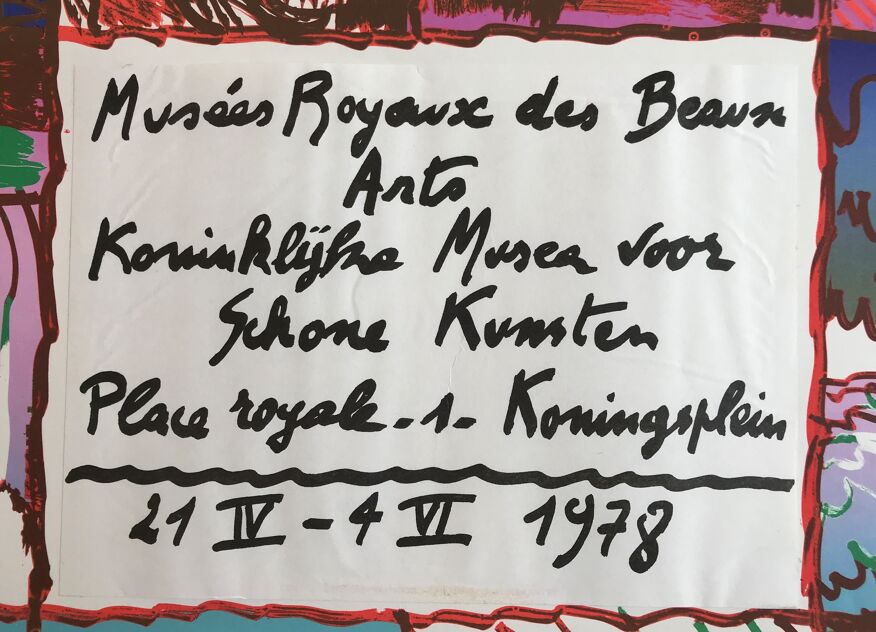 Musées Royaux des Beaux
Arts
Koninklijke Musea voor
Schone Kunsten
Place royale - 1 - Koningsplein
21 IV - 4 VI 1978